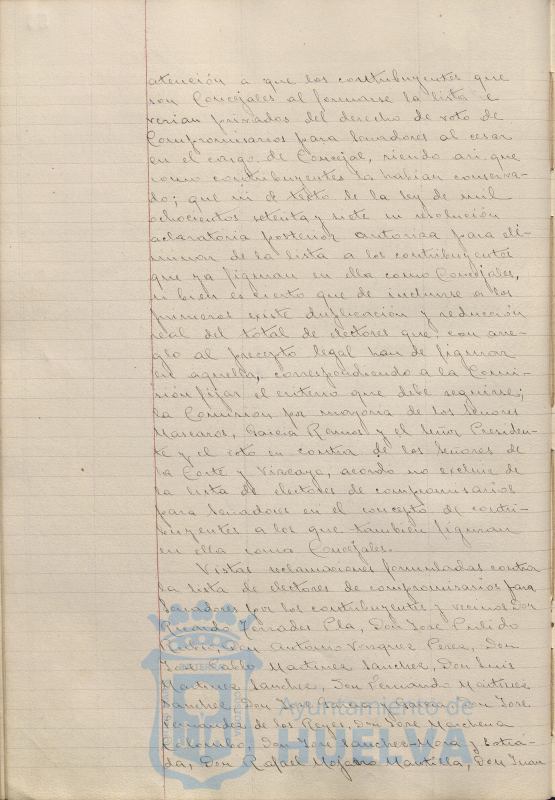 atención a que los contribuyentes que
son Concejales al formarse la lista se
verian privados del derecho de voto de
Compromisarios para Senadores al cesar
en el cargo de Concejal, siendo asi que
como contribuyentes la habian conserva-
do; que ni el texto de la ley de mil
ochocientos setenta y siete ni resolución
aclaratoria posterior autoriza para eli-
minar de la lista a los contribuyentes
que ya figuran en ella como Concejales,
si bien es cierto que de incluirse a los
primeros existe duplicación y reducción
real del total de electores que, con arre-
glo al precepto legal han de figurar
en aquella, correspondiendo a la Comi-
sión fijar el criterio que debe seguirse;
la Comisión por mayoria de los Señores
Mascaros, Garcia Ramos y el Señor Presiden-
te y el voto en contra de los Señores de
la Corte y Vizcaya, acordó no excluir de
la lista de electores de compromisarios
para Senadores en el concepto de contri-
buyentes a los que tambien figuran
en ella como Concejales.
Vistas reclamaciones formuladas contra
la lista de electores de compromisarios para
Senadores por los contribuyentes y vecinos Don
Ricardo Terrades Pla, Don José Pulido
Rubio, Don Antonio Vazquez Perez, Don
José Pablo Martinez Sanchez, Don Luis
Martinez Sanchez, Don Fernando Martinez
Sanchez, Don José Garcia y Garcia, Don José
Fernandez de los Reyes, Don José Marchena
Colombo, Don José Sanchez-Mora y
da, Don Rafael Mojarro Mantilla, Don Juan
Ayuntamiento de
HUELVA